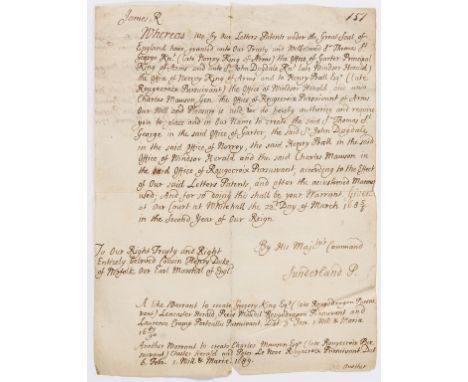 James R
151
Whereas We by Our Letters Patents under the Great Seal of
England have granted unto Our Trusty and Welbeloved Sr. Thomas St.
George Knt. (late Norroy King of Arms) the Office of Garter Principal
King of Arms and unto Sr. John Dugdale Knt. late Windsor Herald
the Office of Norroy King of Arms and to Henry Ball Esqr. (late
Rougecroix Pursuivant) the Office of Windsor Herald and unto
Charles Mawson Gen. the Office of Rougecroix Pursuivant of Arms
Our Will and Pleasure is and We do hereby authorize and require
you to place and in Our Name to Create the said Sr. Thomas St.
George in the said Office of Garter, the said Sr. John Dugdale
in the said Office of Norroy, the said Henry Ball in the said
Office of Windsor Herald and the said Charles Mawson in
the said Office of Rougecroix Pursuivant, according to the Effect
of Our said Letters Patents, and after the accustomed Manner
used, And for so doing this shall be your Warrant, Given
at Our Court at Whitehall the Day of March 168
in the Second Year of Our Reign.
To Our Right Trusty and Right
Entirely beloved Cousin Henry Duke
of Norfolk Our Earl Marshal of Engl.
By His Majties Command
Sunderland P.
A like Warrant to create Gregory King Esqr. (late Rougedragon Pursui
vant) Lancaster Herald Piers Mauduit Rougedragon Pursuivant and
Laurence Cromp Portcullis Pursuivant Dat Jan. 1 Will & Maria
Another Warrant to create Charles Mawson Esqr. (late Rougecroix Pur
suivant) Chester Herald and Peter Le Neve Rougecroix Pursuivant Dat
6. Febr. 1. Will & Mariæ, 1689.
another